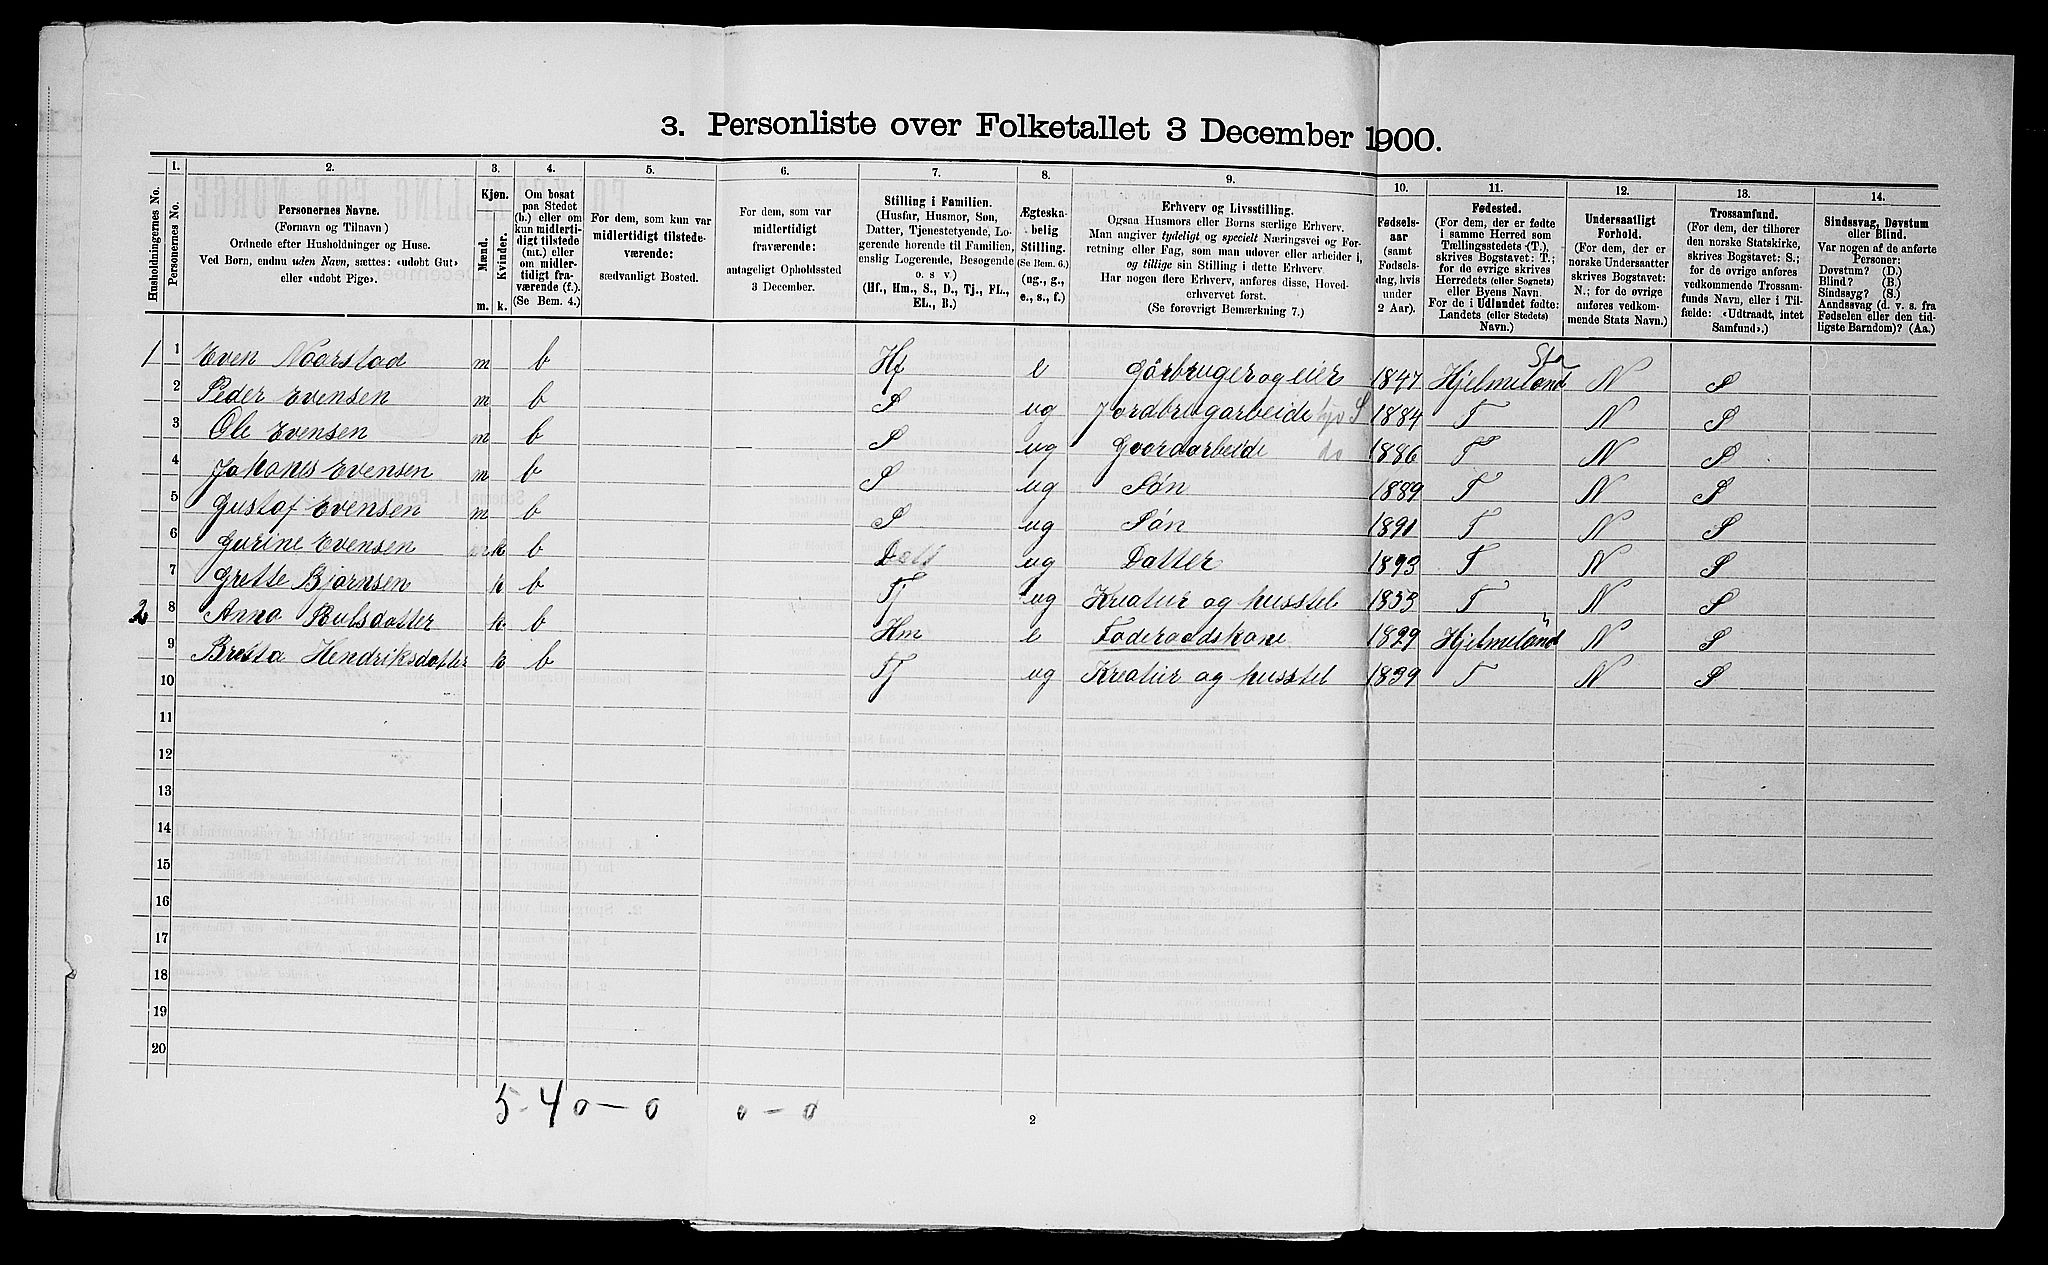 3. Personliste over Folketallet 3 December 1900.
1. 2. 3. 4. 5. 6. 7. 8. 9. 10. 11. 12. 13. 14.
Husholdningernes No.
Personernes No.
Personernes Navne.
(Fornavn og Tilnavn)
Ordnede efter Husholdninger og Huse.
Ved Børn, endnu uden Navn, sættes: «udøbt Gut»
eller «udøbt Pige».
Kjøn.
Mænd.
Kvinder.
m. k.
Om bosat
paa Stedet
(b.) eller om
kun midler-
tidigt tilstede
(mt.) eller
om midler-
tidigt fra-
værende (f.).
(Se Bem. 4.)
For dem, som kun var
midlertidigt tilstede-
værende:
sædvanligt Bosted.
For dem, som var
midlertidigt
fraværende:
antageligt Opholdssted
3 December.
Stilling i Familien.
(Husfar, Husmor, Søn,
Datter, Tjenestetyende, Lo-
gerende hørende til Familien,
enslig Logerende, Besøgende
o. s. v.)
(Hf., Hm., S., D., Tj., FL.,
EL., B.)
Ægteska-
belig
Stilling.
(Se Bem. 6.)
(ug., g.,
e., s., f.)
Erhverv og Livsstilling.
Ogsaa Husmors eller Børns særlige Erhverv.
Man angiver tydeligt og specielt Næringsvei og For-
retning eller Fag, som man udøver eller arbeider i,
og tillige sin Stilling i dette Erhverv.
Har nogen flere Erhverv, anføres disse, Hoved-
erhvervet først.
(Se forøvrigt Bemærkning 7.)
Fødsels-
aar
(samt
Fødsels-
dag, hvis
under
2 Aar).
Fødested.
(For dem, der er fødte
i samme Herred som
Tællingsstedets (T.),
skrives Bogstavet: T.;
for de øvrige skrives
Herredets (eller Sognets)
eller Byens Navn.
For de i Udlandet fødte:
Landets (eller Stedets)
Navn.)
Undersaatligt
Forhold.
(For dem, der er
norske Undersaatter
skrives Bogstavet:
N.; for de øvrige
anføres vedkom-
mende Stats Navn.)
Trossamfund.
(For dem, der tilhører
den norske Statskirke,
skrives Bogstavet: S.;
for de øvrige anføres
vedkommende Trossam-
funds Navn, eller i Til-
fælde: «Udtraadt, intet
Samfund».)
Sindssvag, Døvstum
eller Blind.
Var nogen af de anførte
Personer:
Døvstum? (D.)
Blind? (B.)
Sindssyg? (S.)
Aandssvag (d. v. s. fra
Fødselen eller den tid-
ligste Barndom)? (Aa.)
1 1 Even Noorstad m b Hf e Gårbruger og eier 1847 Hjelmeland N S
2 Peder Evensen m b S ug Jordbrugarbeide 1884 T N S
3 Ole Evensen m b S ug Goordarbeide do 1886 T N S
4 Johanes Evensen m b S ug Søn 1889 T N S
5 Gustaf Evensen m b S ug Søn 1891 T N S
6 Gurine Evensen k b Datt ug Datter 1893 T N S
7 Grette Bjørnsen k b Tj ug Kreatur og husstel 1853 T N S
2 8 Anna Pulsdatter k b Hm e Føderaadskone 1829 Hjelmeland N S
9 Bretta Hendriksdatter k b Tj ug Kreatur og husstel 1839 T N S
10
11
12
13
14
15
16
17
18
19
20
5-4 0-0 0-0
2